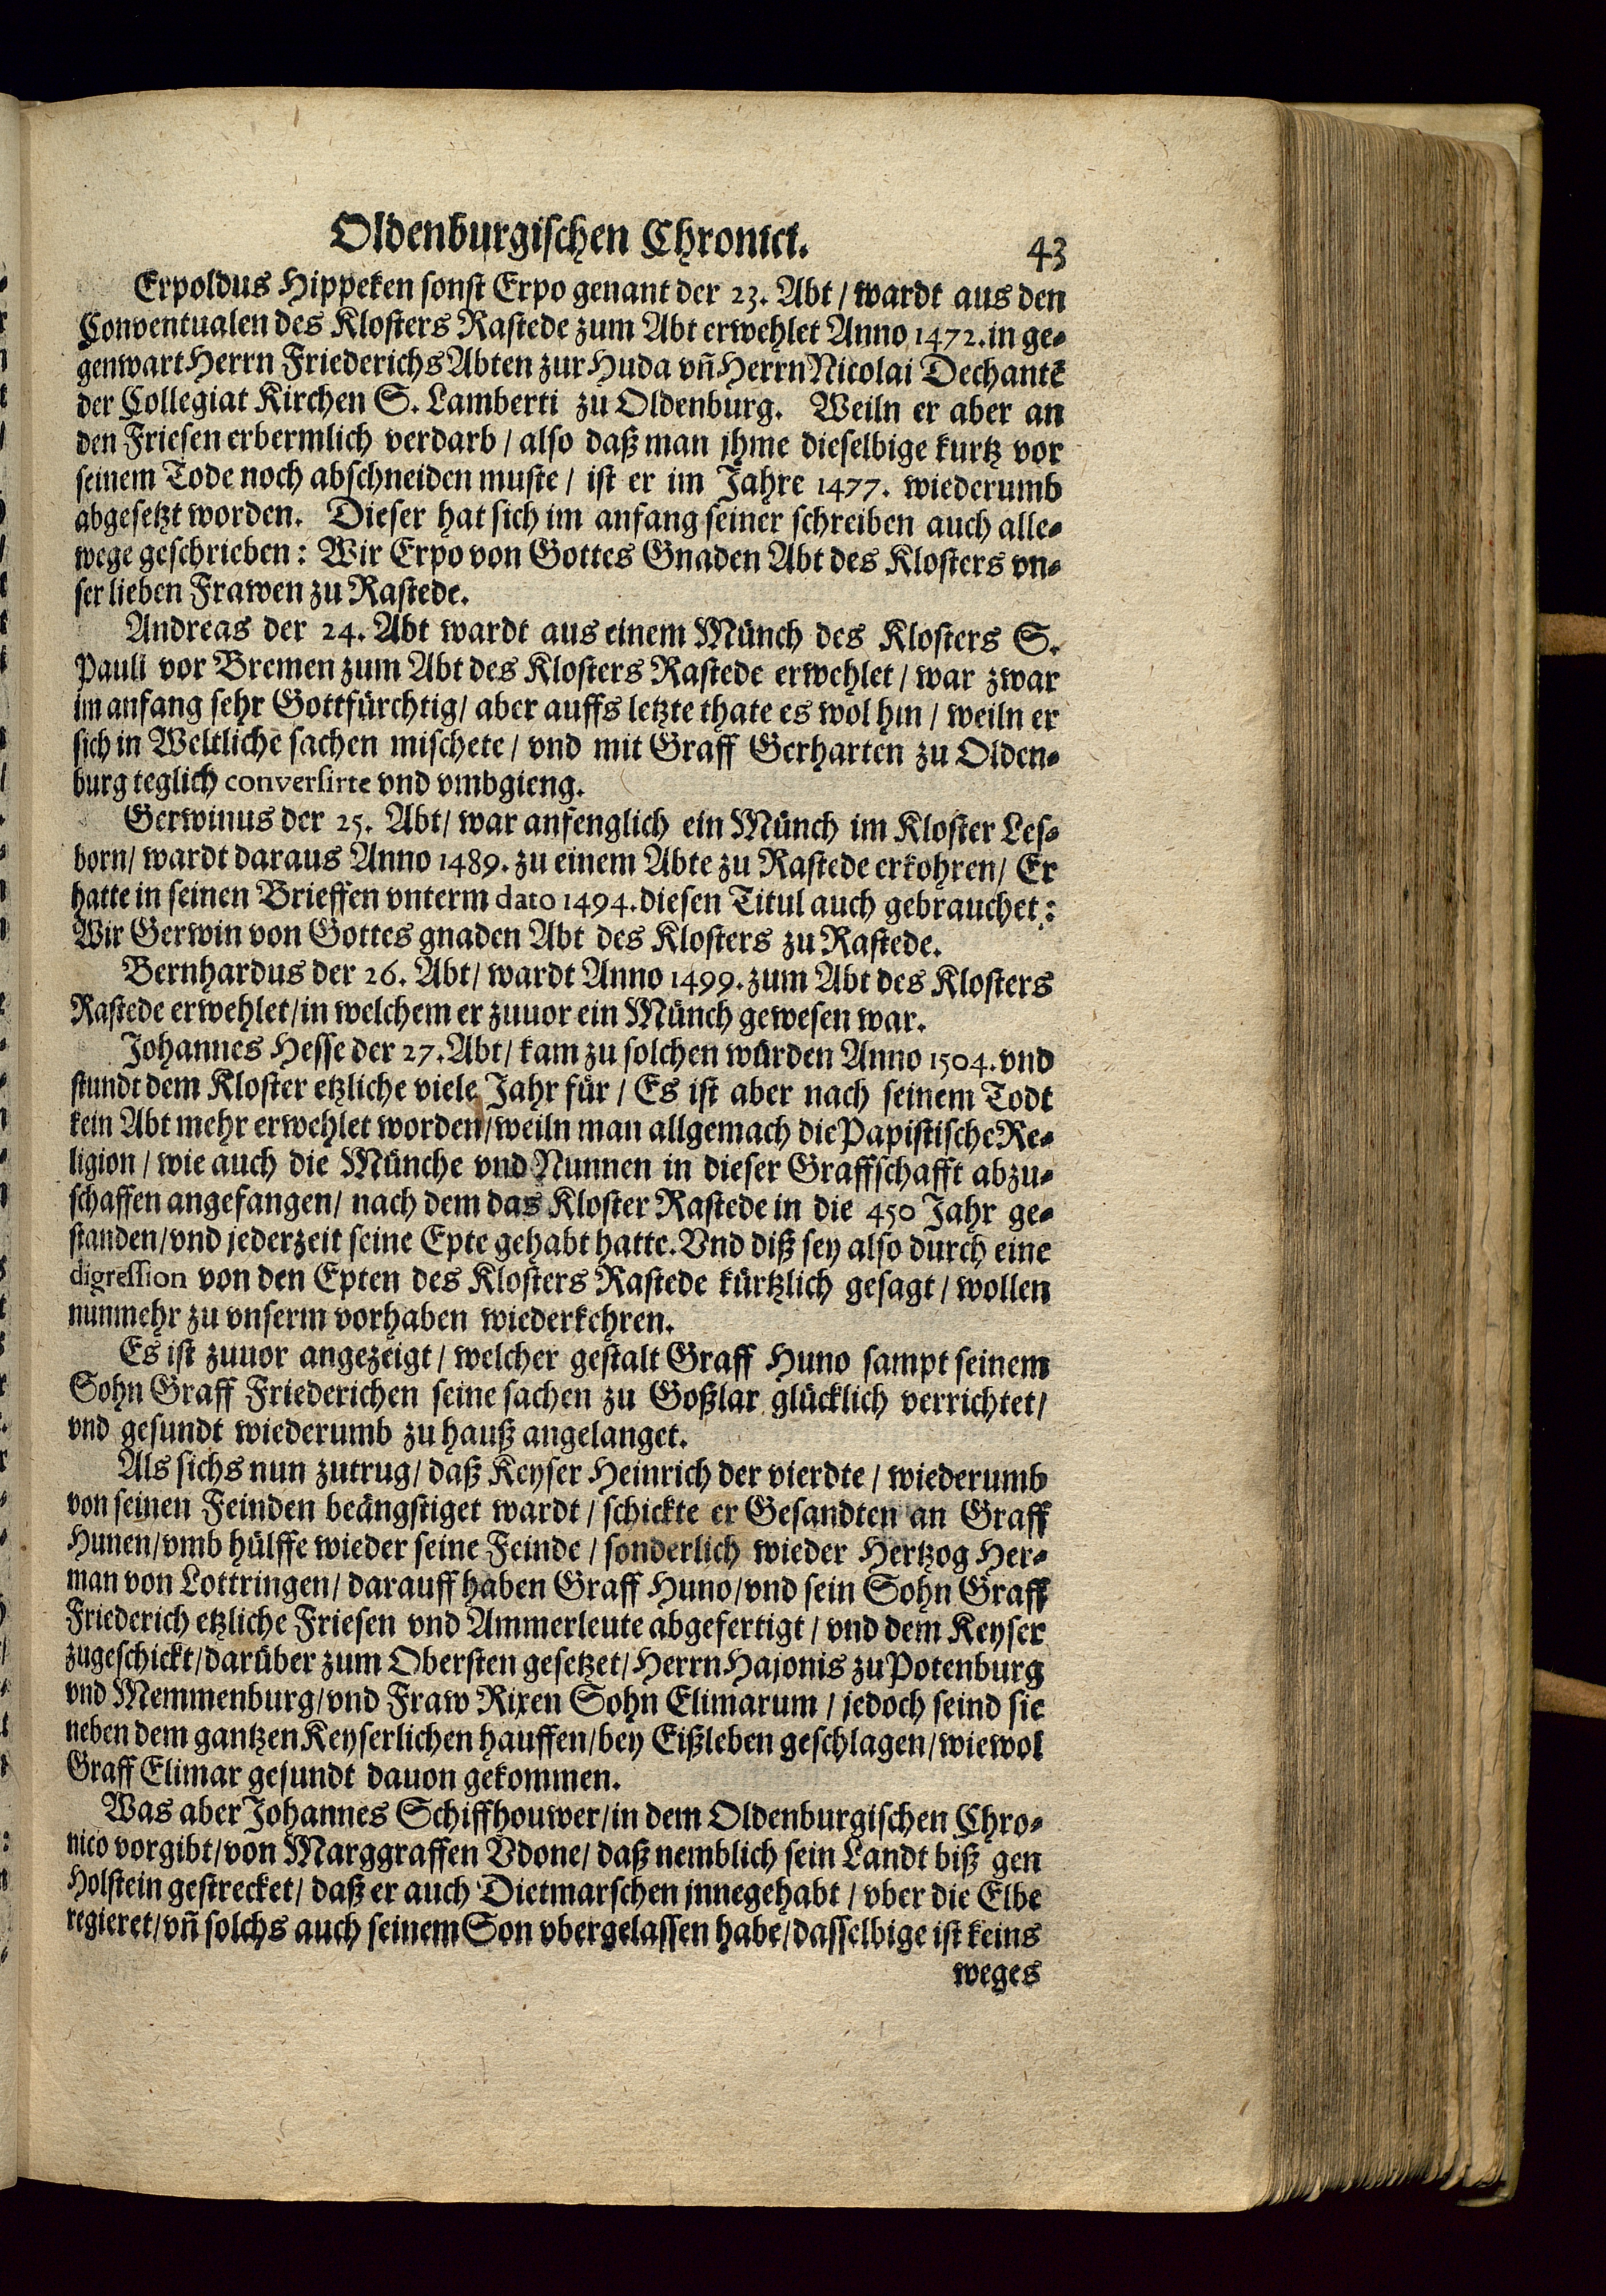 Oldenburgischen Chronici. 43
Erpoldus Hippeken sonst Erpo genant der 23. Abt / wardt aus den
Conventualen des Klosters Rastede zum Abt erwehlet Anno 1472. in ge-
genwart Herrn Friederichs Abten zur Huda vñ Herrn Nicolai Dechantẽ
der Collegiat Kirchen S. Lamberti zu Oldenburg. Weiln er aber an
den Friesen erbermlich verdarb / also daß man jhme dieselbige kurtz vor
seinem Tode noch abschneiden muste / ist er im Jahre 1477. wiederumb
abgesetzt worden. Dieser hat sich im anfang seiner schreiben auch alle-
wege geschrieben: Wir Erpo von Gottes Gnaden Abt des Klosters vn-
ser lieben Frawen zu Rastede.
Andreas der 24. Abt wardt aus einem Münch des Klosters S.
Pauli vor Bremen zum Abt des Klosters Rastede erwehlet / war zwar
im anfang sehr Gottfürchtig / aber auffs letzte thate es wol hin / weiln er
sich in Weltlichẽ sachen mischete / vnd mit Graff Gerharten zu Olden-
burg teglich conversirte vnd vmbgieng.
Gerwinus der 25. Abt / war anfenglich ein Münch im Kloster Les-
born / wardt daraus Anno 1489. zu einem Abte zu Rastede erkohren / Er
hatte in seinen Brieffen vnterm dato 1494. diesen Titul auch gebrauchet:
Wir Gerwin von Gottes gnaden Abt des Klosters zu Rastede.
Bernhardus der 26. Abt / wardt Anno 1499. zum Abt des Klosters
Rastede erwehlet / in welchem er zuuor ein Münch gewesen war.
Johannes Hesse der 27. Abt / kam zu solchen würden Anno 1504. vnd
stundt dem Kloster etzliche viele Jahr für / Es ist aber nach seinem Todt
kein Abt mehr erwehlet worden / weiln man allgemach die Papistische Re-
ligion / wie auch die Münche vnd Nunnen in dieser Graffschafft abzu-
schaffen angefangen / nach dem das Kloster Rastede in die 450 Jahr ge-
standen / vnd jederzeit seine Epte gehabt hatte. Vnd diß sey also durch eine
digression von den Epten des Klosters Rastede kürtzlich gesagt / wollen
nunmehr zu vnserm vorhaben wiederkehren.
Es ist zuuor angezeigt / welcher gestalt Graff Huno sampt seinem
Sohn Graff Friederichen seine sachen zu Goßlar glücklich verrichtet /
vnd gesundt wiederumb zu hauß angelanget.
Als sichs nun zutrug / daß Keyser Heinrich der vierdte / wiederumb
von seinen Feinden beängstiget wardt / schickte er Gesandten an Graff
Hunen / vmb hülffe wieder seine Feinde / sonderlich wieder Hertzog Her-
man von Lottringen / darauff haben Graff Huno / vnd sein Sohn Graff
Friederich etzliche Friesen vnd Ammerleute abgefertigt / vnd dem Keyser
zugeschickt / darüber zum Obersten gesetzet / Herrn Hajonis zu Potenburg
vnd Memmenburg / vnd Fraw Rixen Sohn Elimarum / jedoch seind sie
neben dem gantzen Keyserlichen hauffen / bey Eißleben geschlagen / wiewol
Graff Elimar gesundt dauon gekommen.
Was aber Johannes Schiffhouwer / in dem Oldenburgischen Chro-
nico vorgibt / von Marggraffen Vdone / daß nemblich sein Landt biß gen
Holstein gestrecket / daß er auch Dietmarschen jnnegehabt / vber die Elbe
regieret / vñ solchs auch seinem Son vbergelassen habe / dasselbige ist keins
weges